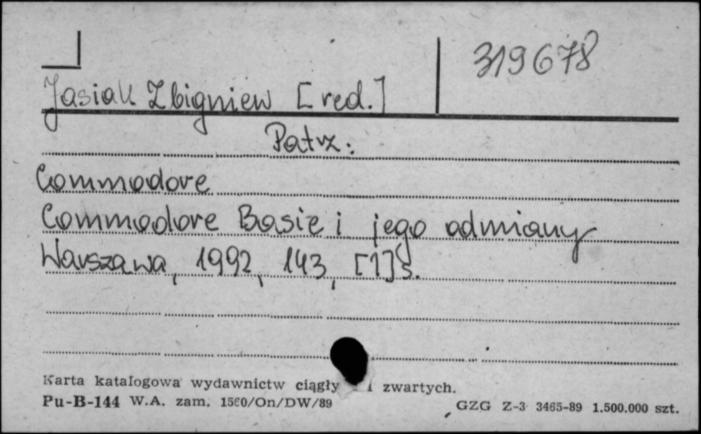 319678
Jasiak Zbigniew [red.]
Patrz:
Commodore
Commodore Basie i jego odmiany
Warszawa, 1992, 143, [1]s.
Karta katalogowa wydawnictw ciągły i zwartych.
Pu-B-144 W.A. zam. 1560/On/DW/89
GZG Z-3 3465-89 1.500.000 szt.